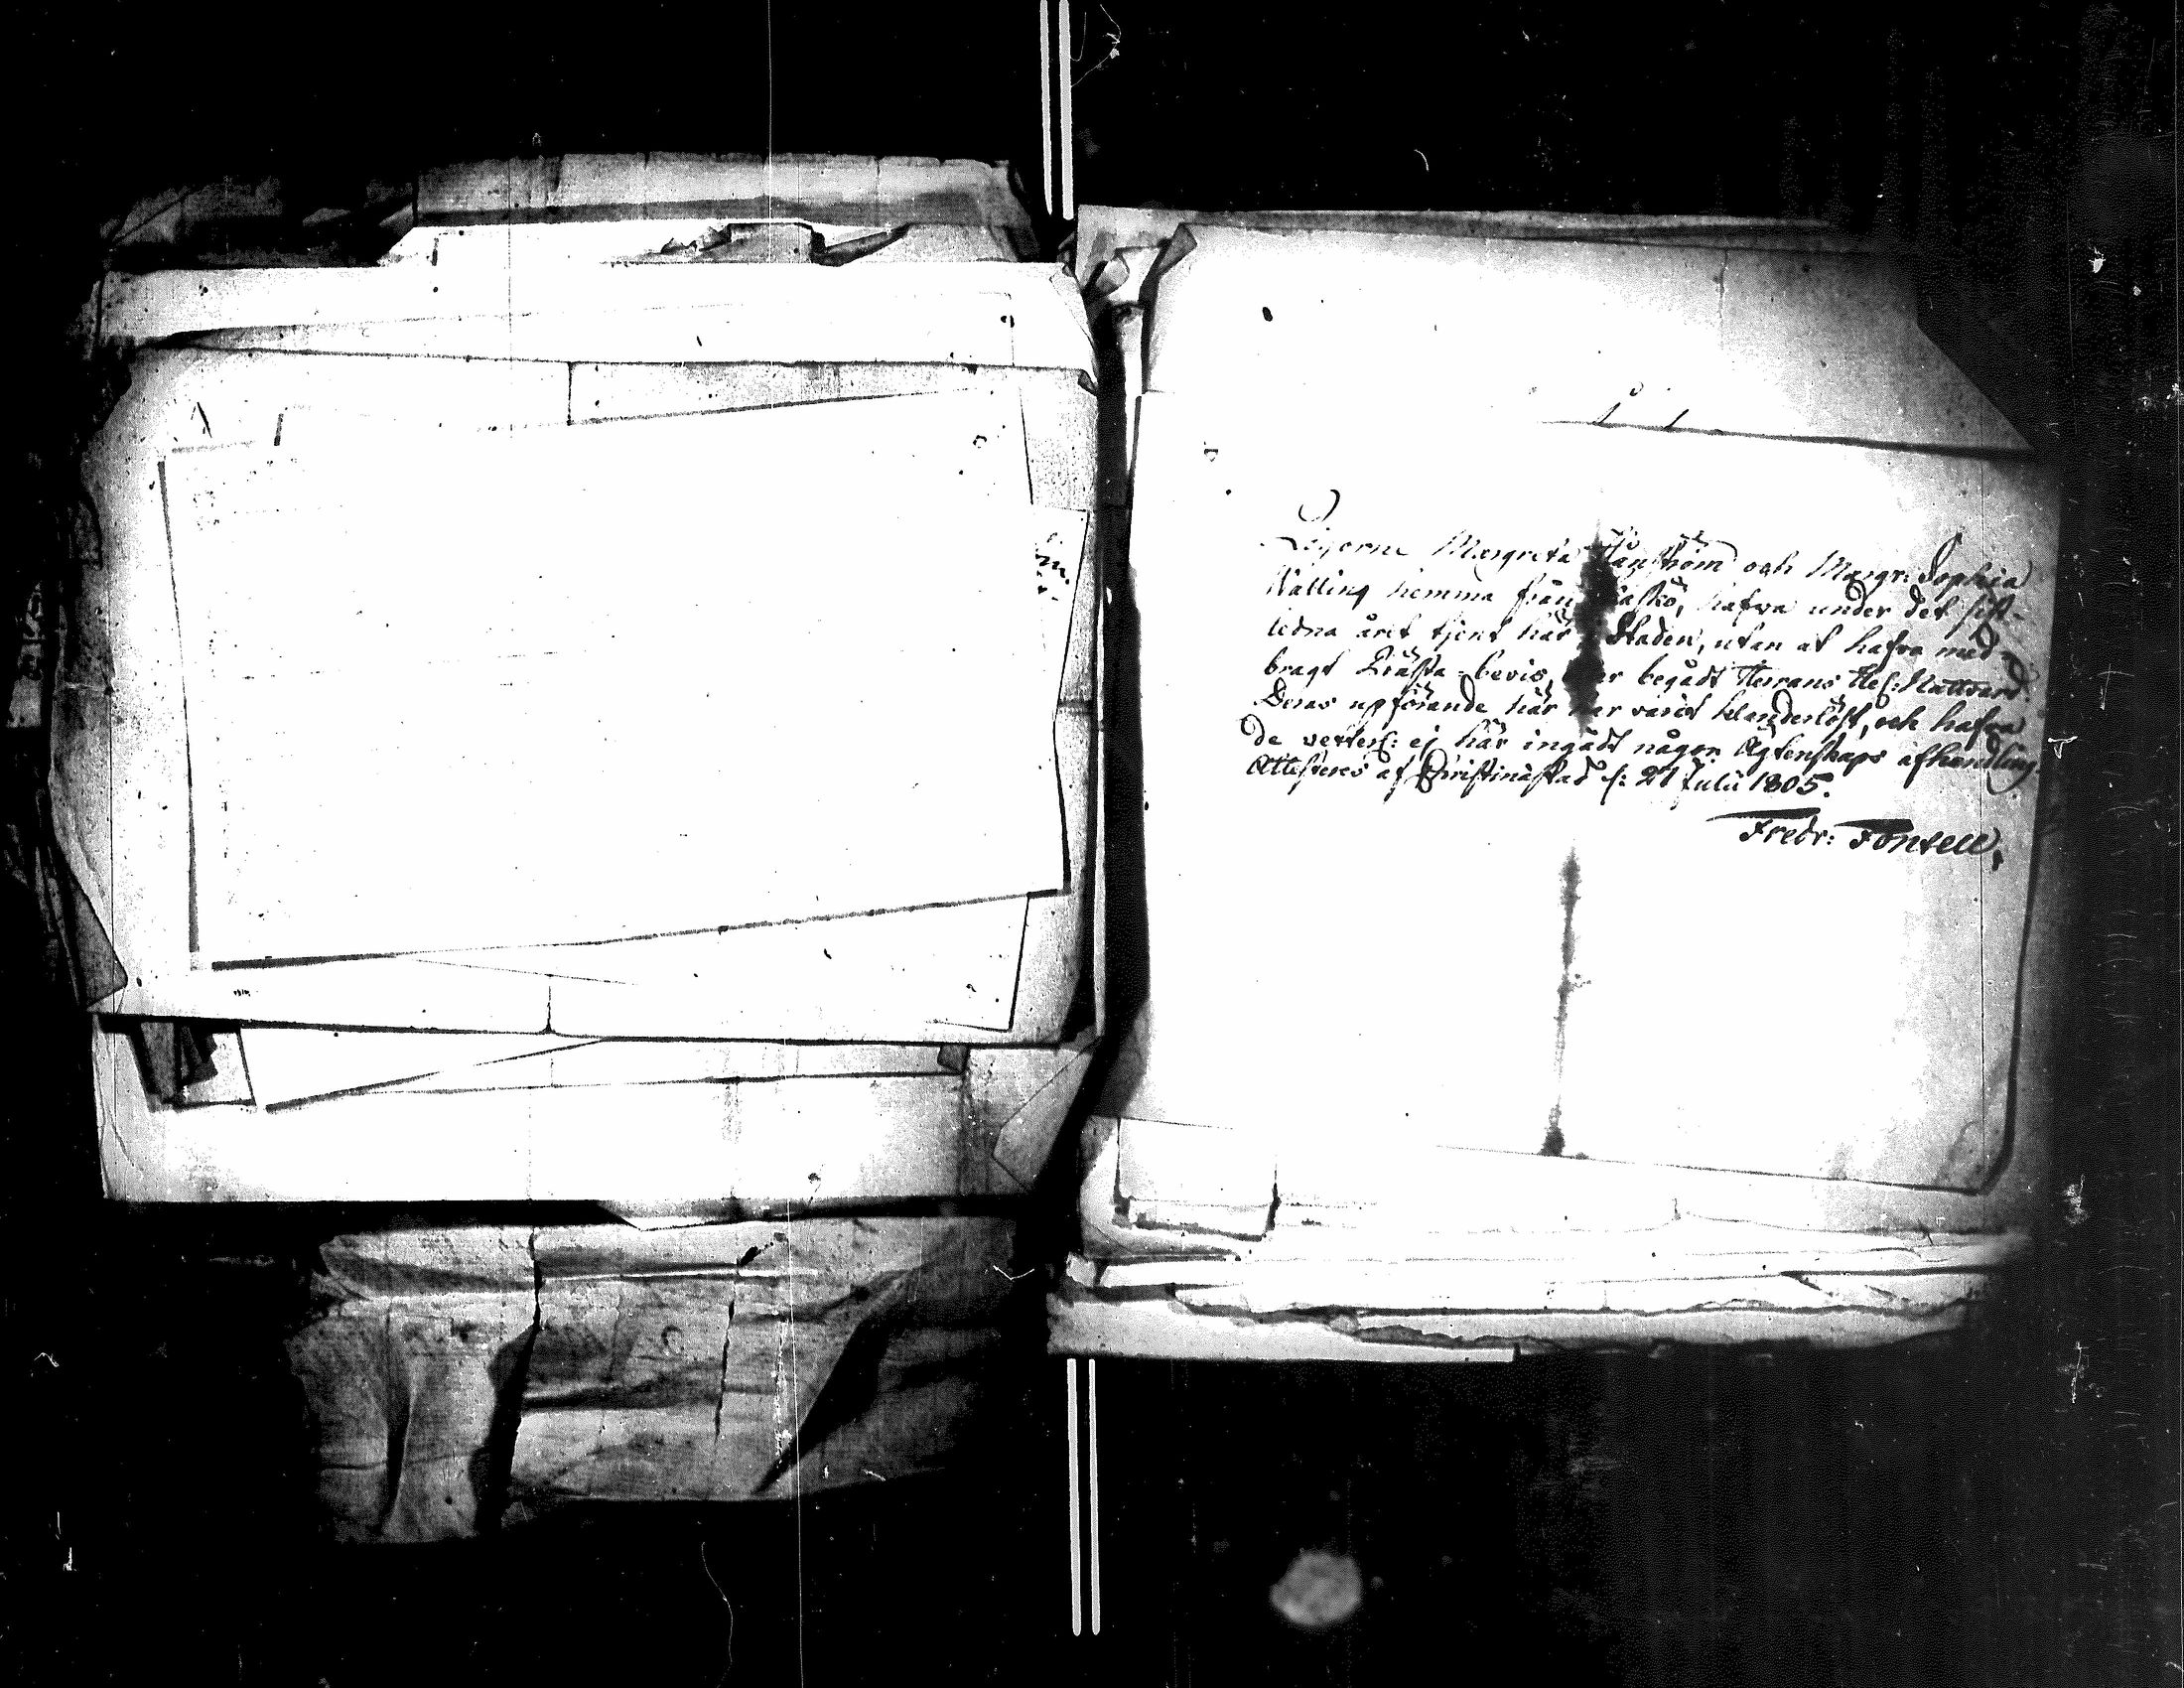 Pigorne Margreta och Margr: Sophia
Välling hemma från Kaskö, hafva under det sist-
ledna året tjent här i Staden, utan at hafva med-
bragt Prästa-bevis, eller begådt Herrans Hel: Nattvard.
Deras upförande här har varit klanderlöst, och hafva
de veterl: ej här ingådt någon Ägtenskaps afhandling.
Attesteras af Christinæstad d: 21 Julii 1805.
Fredr: Fontell.